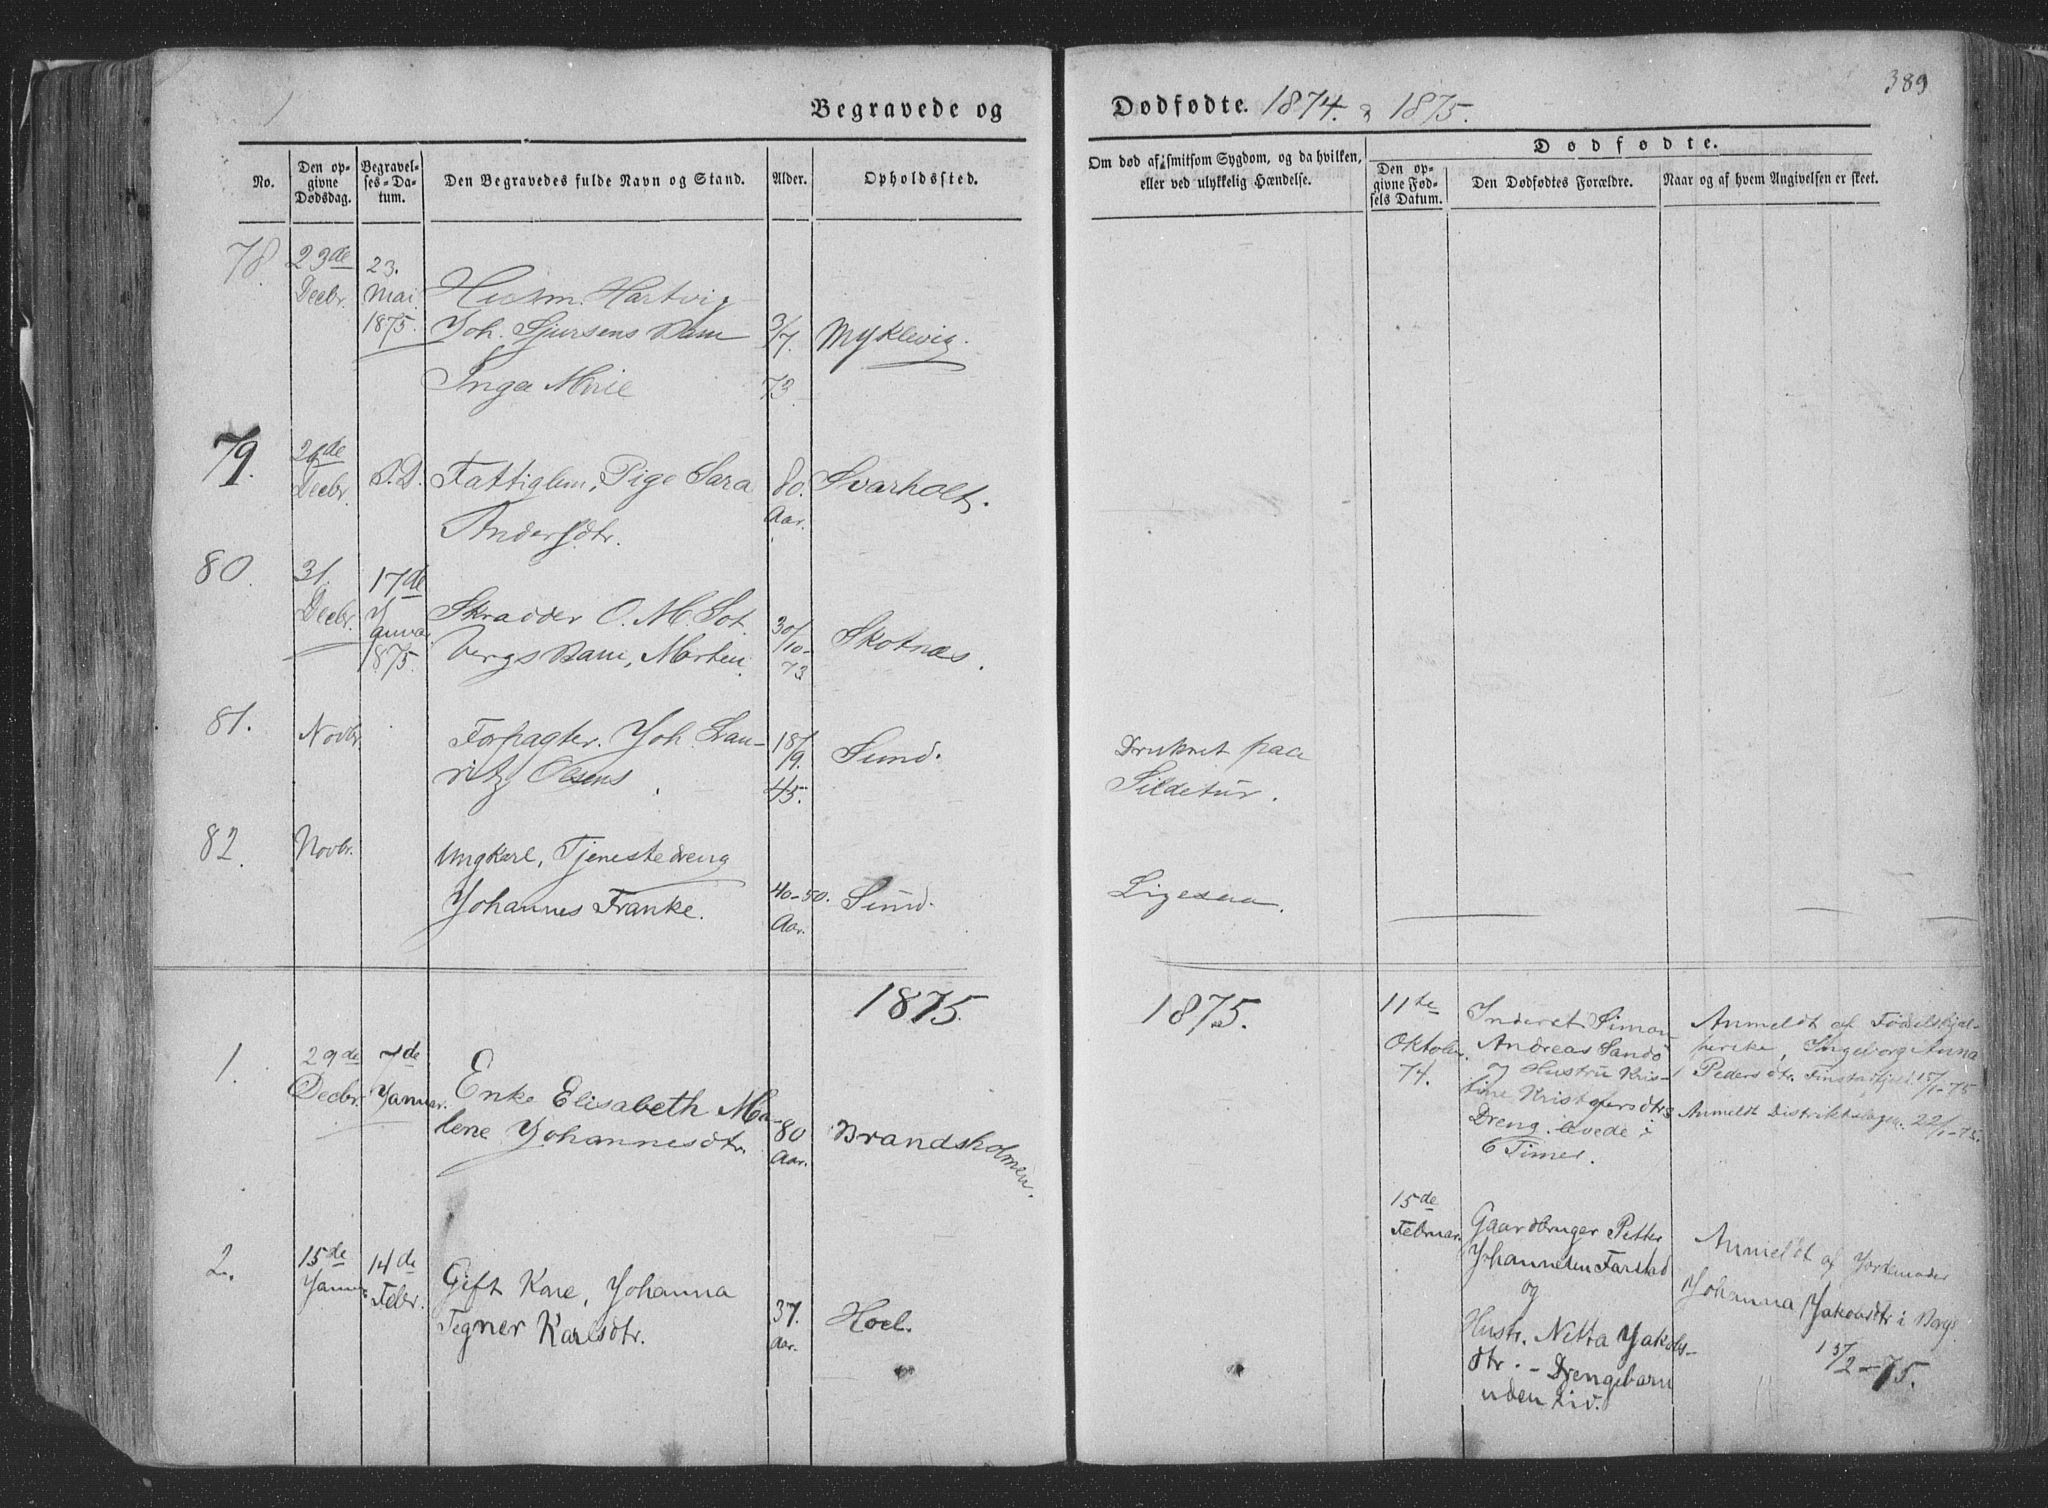 389
Begravede og
Dødfødte. 1874. & 1875.
No.
Den op-
givne
Dødsdag.
Begravel-
ses-Da-
tum.
Den Begravedes fulde Navn og Stand.
Alder.
Opholdssted.
Om død af smitsom Sygdom, og da hvilken,
eller ved ulykkelig Hændelse.
Dødfødte.
Den op-
givne Fød-
sels Datum.
Den Dødfødtes Forældre.
Naar og af hvem Angivelsen er skeet.
78.
23de
Decbr.
23.
Mai
1875.
Husm. Hartvig
Joh. Sjursens Barn
Inga Marie
3/7.
73.
Myklevig.
79.
26de
Decbr.
S.D.
Fattiglem, Pige Sara
Andersdtr.
80.
Aar.
Svarholt.
80.
31.
Decbr.
17de
Januar
1875.
Skrædder O. M. Sot
bergs Barn, Morten.
30/10-
73
Skotnæs.
81.
Novbr.
Forpagter. Joh. Lau-
ritz Olsens
18/9.
45.
Sund.
Druknet paa
Sildetur.
82.
Novbr.
Ungkarl, Tjenestedreng
Johannes Franke.
40-50.
Aar.
Sund.
Ligesaa.
1875.
1875.
1.
29de
Decbr.
7de
Januar.
Enke Elisabeth Ma-
lene Johannesdtr.
80
Aar.
Brandsholmen.
11te
Oktober
74.
Inderst Simon
Andreas Sandö
og Hustru Kris-
tine Kristofersdtrs
Dreng. levede i
6 Timer.
Anmeldt af Fødselshjæl-
perske, Ingeborg Anna
Pedersdtr. Finstad 15/1-75
Anmeldt Distriktslægen. 22/1-75.
2.
15de
Januar
14de
Febr.
Gift Kone, Johanna
Tegner Karlsdtr.
37.
Aar.
Hoel.
15de
Februar.
Gaardbruger Petter
Johannesen Farstad
og
Hustr. Netta Jakobs-
dtr. - Drengebarn
uden Liv.
Anmeldt af Jordemoder
Johanna Jakobsdtr i Borg.
15/2-75.